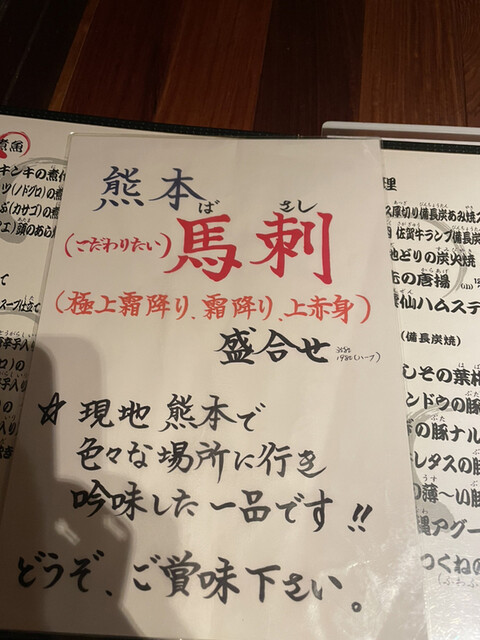 熊本
ば さし
(こだわりたい)馬刺
(極上霜降り、霜降り、上赤身)
盛合せ
☆現地 熊本で
色々な場所に行き
吟味した一品です!!
どうぞ、ご賞味下さい。
煮魚
キンキの煮付
(カサゴ)の煮
頭のあら
厚切り備長炭あみ焼
佐賀牛ランプ備長炭
どりの炭火焼
の唐揚
仙ハムステ
(備長炭焼)
しその葉
ンドウの豚
の豚ナル
レタスの豚
の薄〜い豚
アグー
つくねの